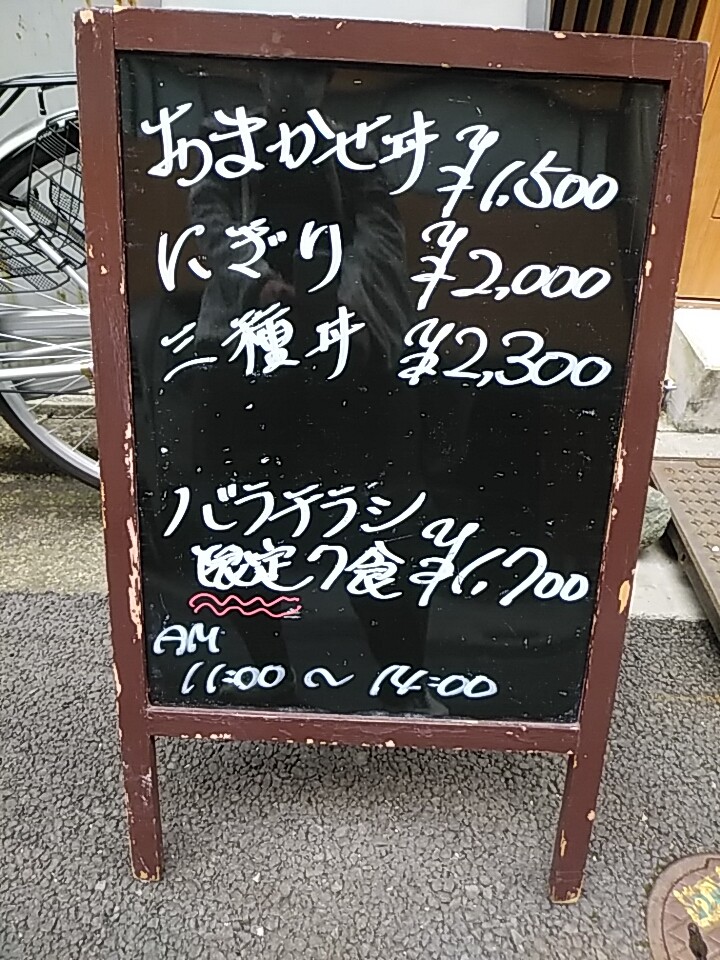 おまかせ丼 ¥1,500
にぎり ¥2,000
三種丼 ¥2,300
バラチラシ
限定7食 ¥1,700
AM
11:00 〜 14:00